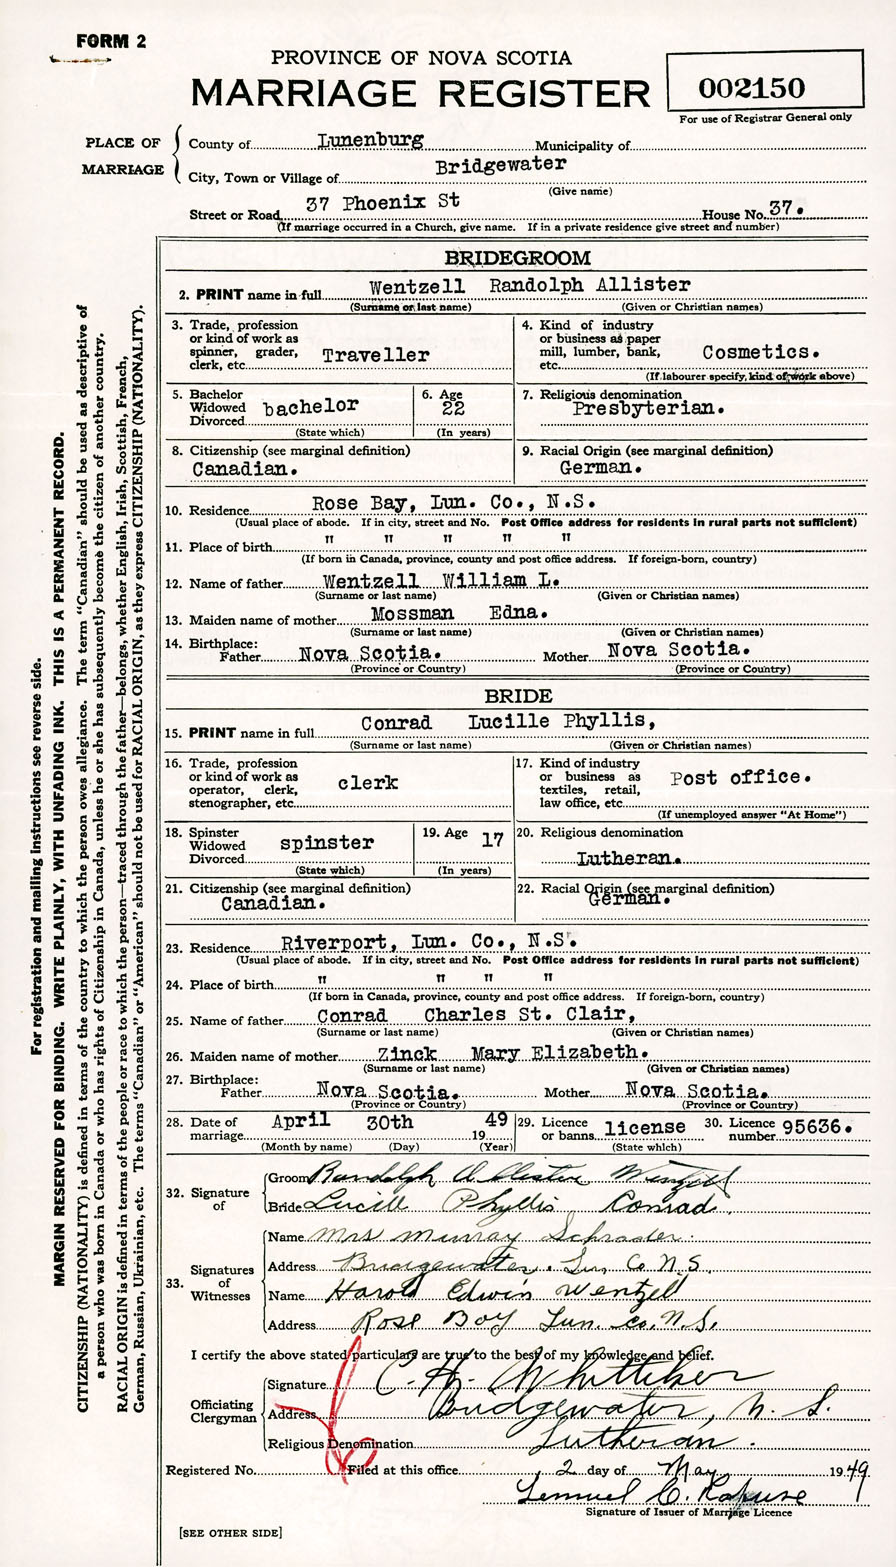 FORM 2
PROVINCE OF NOVA SCOTIA
MARRIAGE REGISTER
002150
For use of Registrar General only
PLACE OF MARRIAGE
County of Lunenburg Municipality of
City, Town or Village of Bridgewater
(Give name)
Street or Road 37 Phoenix St House No. 37.
(If marriage occurred in a Church, give name. If in a private residence give street and number)
For registration and mailing instructions see reverse side.
MARGIN RESERVED FOR BINDING. WRITE PLAINLY, WITH UNFADING INK. THIS IS A PERMANENT RECORD.
CITIZENSHIP (NATIONALITY) is defined in terms of the country to which the person owes allegiance. The term "Canadian" should be used as descriptive of
a person who was born in Canada or who has rights of Citizenship in Canada, unless he or she has subsequently become the citizen of another country.
RACIAL ORIGIN is defined in terms of the people or race to which the person—traced through the father—belongs, whether English, Irish, Scottish, French,
German, Russian, Ukrainian, etc. The terms "Canadian" or "American" should not be used for RACIAL ORIGIN, as they express CITIZENSHIP (NATIONALITY).
BRIDEGROOM
2. PRINT name in full Wentzell Randolph Allister
(Surname or last name) (Given or Christian names)
3. Trade, profession
or kind of work as
spinner, grader,
clerk, etc. Traveller
4. Kind of industry
or business as paper
mill, lumber, bank,
etc. Cosmetics.
(If labourer specify, kind of work above)
5. Bachelor
Widowed
Divorced bachelor
(State which)
6. Age
22
(In years)
7. Religious denomination
Presbyterian.
8. Citizenship (see marginal definition)
Canadian.
9. Racial Origin (see marginal definition)
German.
10. Residence Rose Bay, Lun. Co., N.S.
(Usual place of abode. If in city, street and No. Post Office address for residents in rural parts not sufficient)
11. Place of birth " " " " "
(If born in Canada, province, county and post office address. If foreign-born, country)
12. Name of father Wentzell William L.
(Surname or last name) (Given or Christian names)
13. Maiden name of mother Mossman Edna.
(Surname or last name) (Given or Christian names)
14. Birthplace:
Father Nova Scotia. Mother Nova Scotia.
(Province or Country) (Province or Country)
BRIDE
15. PRINT name in full Conrad Lucille Phyllis,
(Surname or last name) (Given or Christian names)
16. Trade, profession
or kind of work as
operator, clerk,
stenographer, etc. clerk
17. Kind of industry
or business as
textiles, retail,
law office, etc. Post office.
(If unemployed answer "At Home")
18. Spinster
Widowed
Divorced spinster
(State which)
19. Age 17
(In years)
20. Religious denomination
Lutheran.
21. Citizenship (see marginal definition)
Canadian.
22. Racial Origin (see marginal definition)
German.
23. Residence Riverport, Lun. Co., N.S.
(Usual place of abode. If in city, street and No. Post Office address for residents in rural parts not sufficient)
24. Place of birth " " " "
(If born in Canada, province, county and post office address. If foreign-born, country)
25. Name of father Conrad Charles St. Clair,
(Surname or last name) (Given or Christian names)
26. Maiden name of mother Zinck Mary Elizabeth.
(Surname or last name) (Given or Christian names)
27. Birthplace:
Father Nova Scotia. Mother Nova Scotia.
(Province or Country) (Province or Country)
28. Date of marriage April 30th 1949
(Month by name) (Day) (Year)
29. Licence or banns license
(State which)
30. Licence number 95636.
32. Signature of
Groom Randolph Allister Wentzell
Bride Lucill Phyllis Conrad.
33. Signatures of Witnesses
Name Mrs Murray Schrader.
Address Bridgewater. Lun Co N.S.
Name Harold Edwin Wentzell
Address Rose Bay Lun. Co. N.S.
I certify the above stated particulars are true to the best of my knowledge and belief.
Officiating Clergyman
Signature C. H. Whitteker
Address Bridgewater, N. S.
Religious Denomination Lutheran.
Registered No. Filed at this office 2 day of May 1949
Lemuel C. Rafuse
Signature of Issuer of Marriage Licence
[SEE OTHER SIDE]